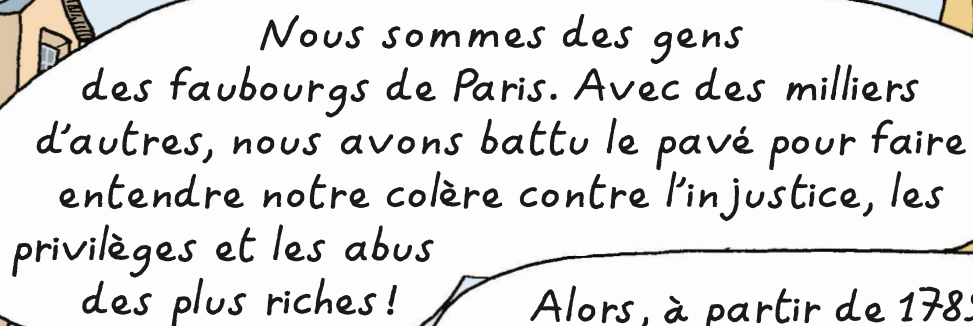 Nous sommes des gens
des faubourgs de Paris. Avec des milliers
d'autres, nous avons battu le pavé pour faire
entendre notre colère contre l'injustice, les
privilèges et les abus
des plus riches !
Alors, à partir de